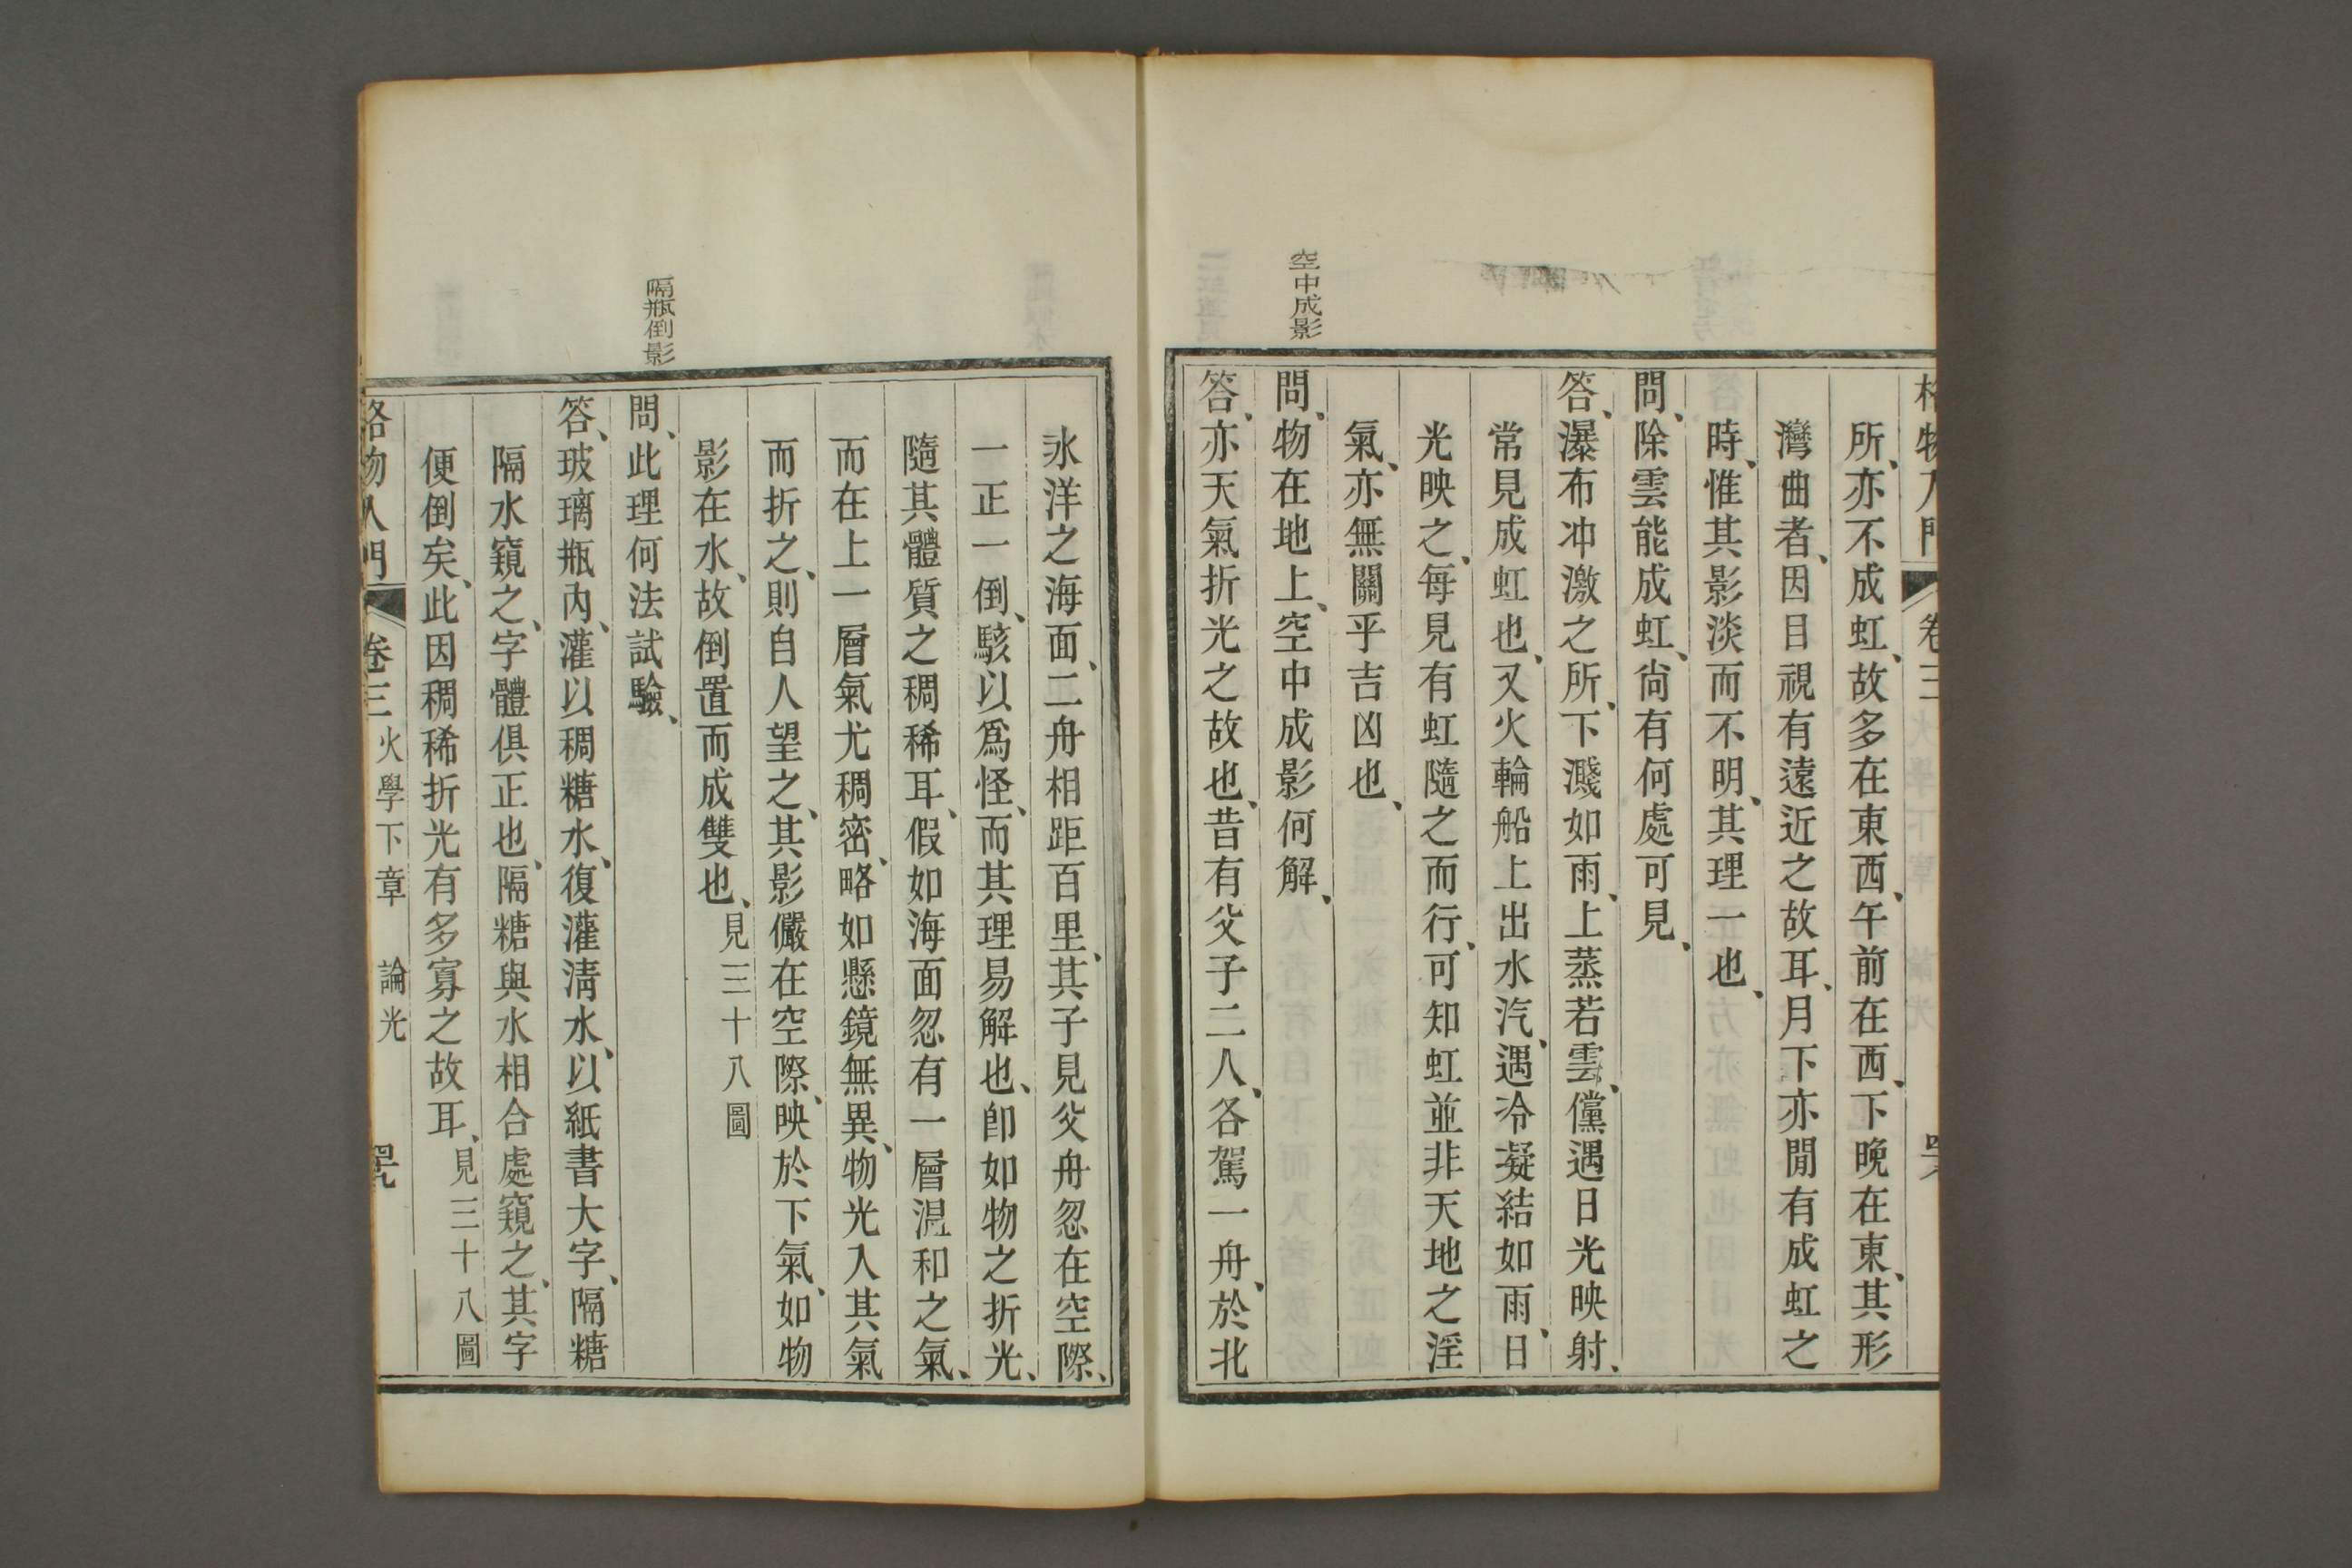 格物入門 卷三
所、亦不成虹、故多在東西、午前在西、下晚在東、其形
灣曲者、因目視有遠近之故耳、月下亦閒有成虹之
時、惟其影淡而不明、其理一也、
問、除雲能成虹、尙有何處可見、
答、瀑布冲激之所、下濺如雨、上蒸若雲、儻遇日光映射、
常見成虹也、又火輪船上出水汽、遇冷凝結如雨、日
光映之、每見有虹隨之而行、可知虹並非天地之淫
氣、亦無關乎吉凶也、
空中成影
問、物在地上、空中成影何解、
答、亦天氣折光之故也、昔有父子二人、各駕一舟、於北
氷洋之海面、二舟相距百里、其子見父舟忽在空際、
一正一倒、駭以爲怪、而其理易解也、卽如物之折光、
隨其體質之稠稀耳、假如海面忽有一層溫和之氣、
而在上一層氣尤稠密、略如懸鏡無異、物光入其氣
而折之、則自人望之、其影儼在空際、映於下氣、如物
影在水、故倒置而成雙也、見三十八圖
隔瓶倒影
問、此理何法試驗、
答、玻璃瓶內、灌以稠糖水、復灌淸水、以紙書大字、隔糖
隔水窺之、字體俱正也、隔糖與水相合處窺之、其字
便倒矣、此因稠稀折光有多寡之故耳、見三十八圖
格物入門 卷三 火學下章 論光